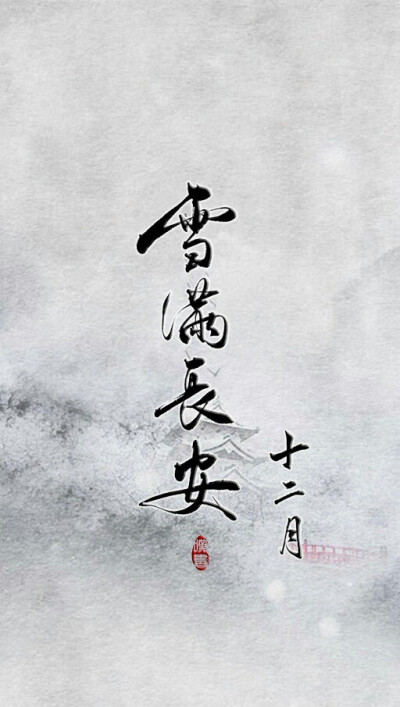 雪滿長安
十二月